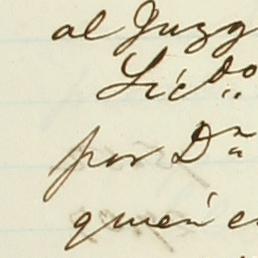 al Juzg
Licdo..
por Dn
quien e